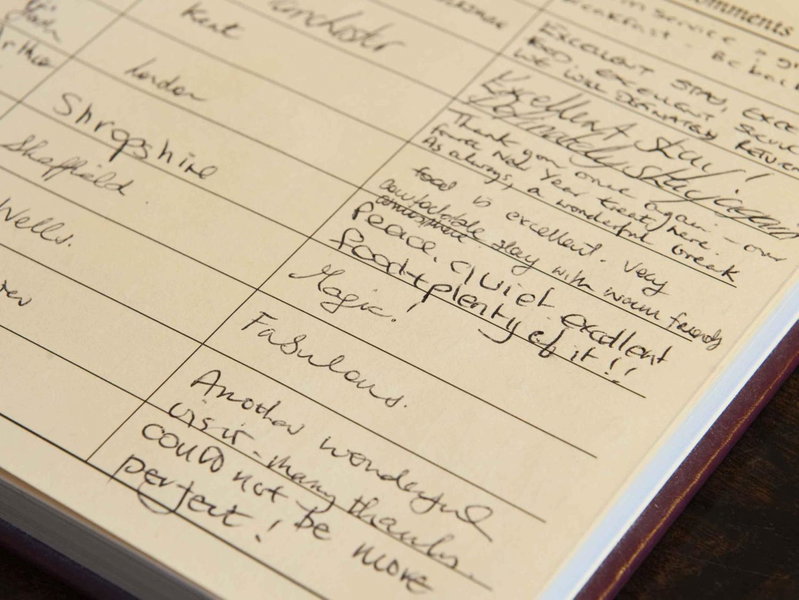 Comments
Kent
Manchester
London
EXCELLENT STAY,
FOOD. EXCELLENT
WE WILL DEFINATELY RETURN
Shropshire
Excellent stay!
Definately stay again
Sheffield.
Thank you once again - our
New Year treat here.
As always, a wonderful break
Wells.
food is excellent. Very
comfortable stay with warm friendly
Peace, quiet excellent
food + plenty of it!!
Magic!
Fabulous.
Another wonderful
visit - many thanks.
could not be more
perfect!